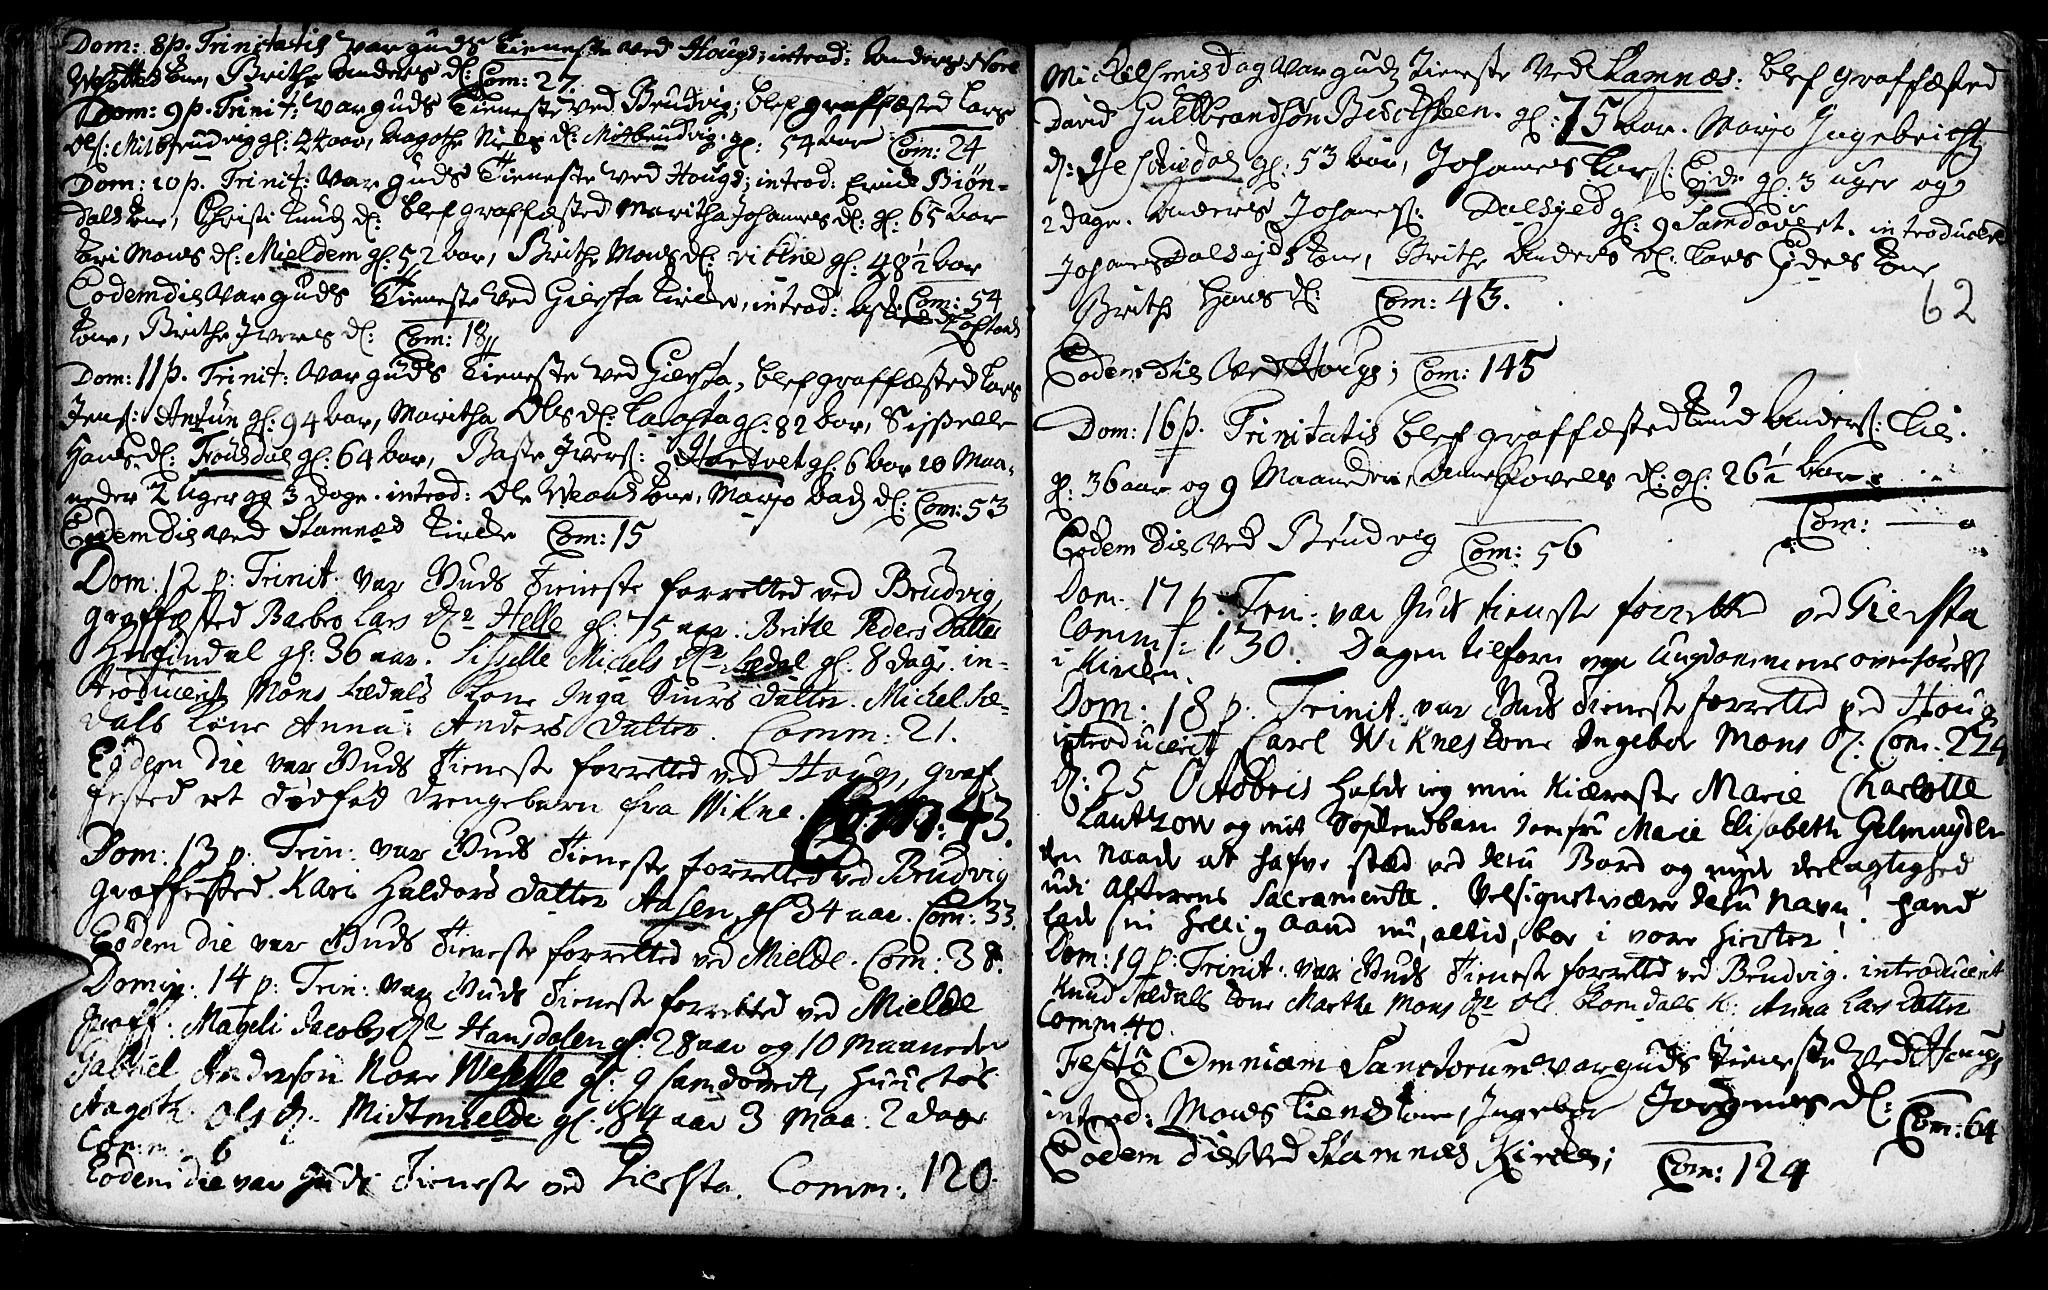 Dom: 8 p. Trinitatis var guds Tieneste ved Hougs; introd: Anders Nore
Wesettes Kone, Brithe Anders D: Com: 27.
Dom: 9 p. Trinit: var guds Tieneste ved Brudvig; blef graffæsted Lars
Ols: Mitbrudvig gl: aar, Aagothe Niels D: Mitbrudvig. gl: 54 aar Com: 24
Dom: 10 p. Trinit: var guds Tieneste ved Hougs; introd: Biøn-
dals Kone, Christi Knuds D: blef graffæsted Maritha Johannes D: gl: 65 aar
Kari Mons D: Mieldem gl: 52 aar, Brithe Mons D: Vikne gl: 48½ aar
Com: 54
Eodem die var guds Tieneste ved Giersta Kirke, introd:
Kone, Brithe Ivers D: Com: 18
Dom: 11 p. Trinit: var guds Tieneste ved Giersta, blef graffæsted Lars
Jens: Antun gl: 94 aar, Maritha Ols D: gl: 82 aar, Sisselle
Hans D: Fousdal gl: 64 aar, Baste Ivers: Hartvet gl: 6 aar 10 Maa-
neder 2 Uger og 3 dage. introd: Ole Kone, Marjo D: Com: 53
Eodem die ved Stamnæs Kirke Com: 15
Dom: 12 p: Trinit: var Guds Tieneste forretted ved Brudvig,
graffæsted Barbro Lars Dr Helle gl: 75 aar. Britte Peders Datter
gl: 36 aar. Sisselle Michels Dr Sædal gl. 8 dage. in-
troducerit Mons Sædals Kone Inga Siurs Datter. Michel Sæ-
dals Kone Anna: Anders Datter. Comm: 21.
Eodem die var Guds Tieneste forretted ved Hougs, graf
fested et dødfød drengebarn fra Wikne. Com: 43.
Dom: 13 p: Trin: var Guds Tieneste forretted ved Brudvig
graffested. Kari Haldors Datter Aasen, gl 34 aar. Com: 33.
Eodem die var Guds Tieneste forretted ved Mielde. Com: 38.
Domin. 14 p: Trin: var Guds Tieneste forretted ved Mielde
graff: Mageli Jacobs Dr Hansdalen gl: 28 aar og 10 Maaneder
Gabriel Andersøn Nore Wesette gl: 9 samdøvret, Huustos
Aagoth Ols D. Midtmielde gl. 84 aar 3 Maa: 2 dage
Comm: 6
Eodem die var Guds Tieneste ved Giersta. Comm: 120.
Michelsmisdag var guds tieneste ved Stamnæs: blef graffæsted
David Gulbrandsøn gl: 75 aar. Marjo Ingebricht
D: gl: 53 aar, Johannes Lars: Eide gl: 3 uger og
2 dage. Anders Johans: Dalseyed gl: 9 Samdøvret. introducered
Johanes Dalseyds Kone, Brithe Anders D: Lars Eides Kone
Brithe Hans D: Com: 43.
62
Eodem die ved Hougs; Com: 145
Dom: 16 p. Trinitatis blef graffæsted Knud Anders:
gl: 36 aar og 9 Maaneder, D: gl: 26½ aar
Com:
Eodem die ved Brudvig Com: 56
Dom. 17 p. Trin: var Guds tieneste forretted ved Giersta
Comm: 130. Dagen tilforn var Ungdommens overhørelse
i Kirken.
Dom: 18 p: Trinit: var Guds Tieneste forretted ved Houg
introducerit Carel Wiknes Kone Ingebor Mons D. Com: 224
D: 25 Octobris hafde ieg min Kiæreste Marie Charlotte
Lautzow og mit Søskendbarn Jomfru Marie Elisabeth Gelmuyden
den Naade at hafve stæd ved Jesu Bord og nyde deelagtighed
udi Alterens Sacramente. Velsignet være Jesu Navn! Hand
lade sin Hellig Aand nu, altid, boe i vore Hierter!
Dom: 19 p: Trinit: var Guds Tieneste forretted ved Brudvig. introducerit
Knud Sædals Kone Marthe Mons Dr Ole Blomdals K: Anna Lars Datter
Comm: 40.
Festo Omnium Sanctorum var guds Tieneste ved Hougs
introd: Mons Kone, Ingebor Jørgens D: Com: 64
Eodem die ved Stamnæs Kirke; Com: 124